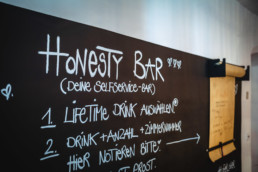 HONESTY BAR
(DEINE SELFSERVICE-BAR)
1. LIFETIME DRINK AUSWÄHLEN
2. DRINK + ANZAHL + ZIMMERNUMMER
HIER NOTIEREN BITTE.
PROST.